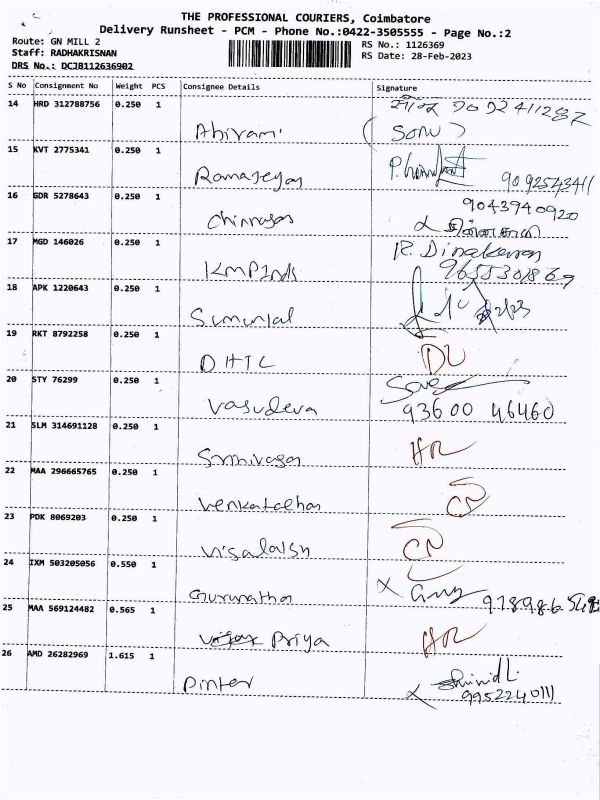 THE PROFESSIONAL COURIERS, Coimbatore
Delivery Runsheet - PCM - Phone No.:0422-3505555 - Page No.:2
Route: GN MILL 2
RS No.: 1126369
Staff: RADHAKRISNAN
RS Date: 28-Feb-2023
DRS No.: DCJB112636902
S No Consignment No Weight PCS Consignee Details Signature
14 HRD 312788756 0.250 1 Abirami
(SONU)
15 KVT 2775341 0.250 1 9092543411
16 GDR 5278643 0.250 1 Chinnasas 9043940920
17 MGD 146026 0.250 1 KMP Inds R. Dinakaran
18 APK 1220643 0.250 1
19 RKT 8792258 0.250 1 DHTC DL
20 STY 76299 0.250 1 Vasudeva 93600 46460
21 SLM 314691128 0.250 1 Srinivasan HR
22 MAA 296665765 0.250 1 CN
23 PDK 8069203 0.250 1 CN
24 IXM 503205056 0.550 1 Gurunatha
25 MAA 569124482 0.565 1 Priya HR
26 AMD 26282969 1.615 1 Pinter 9952240111